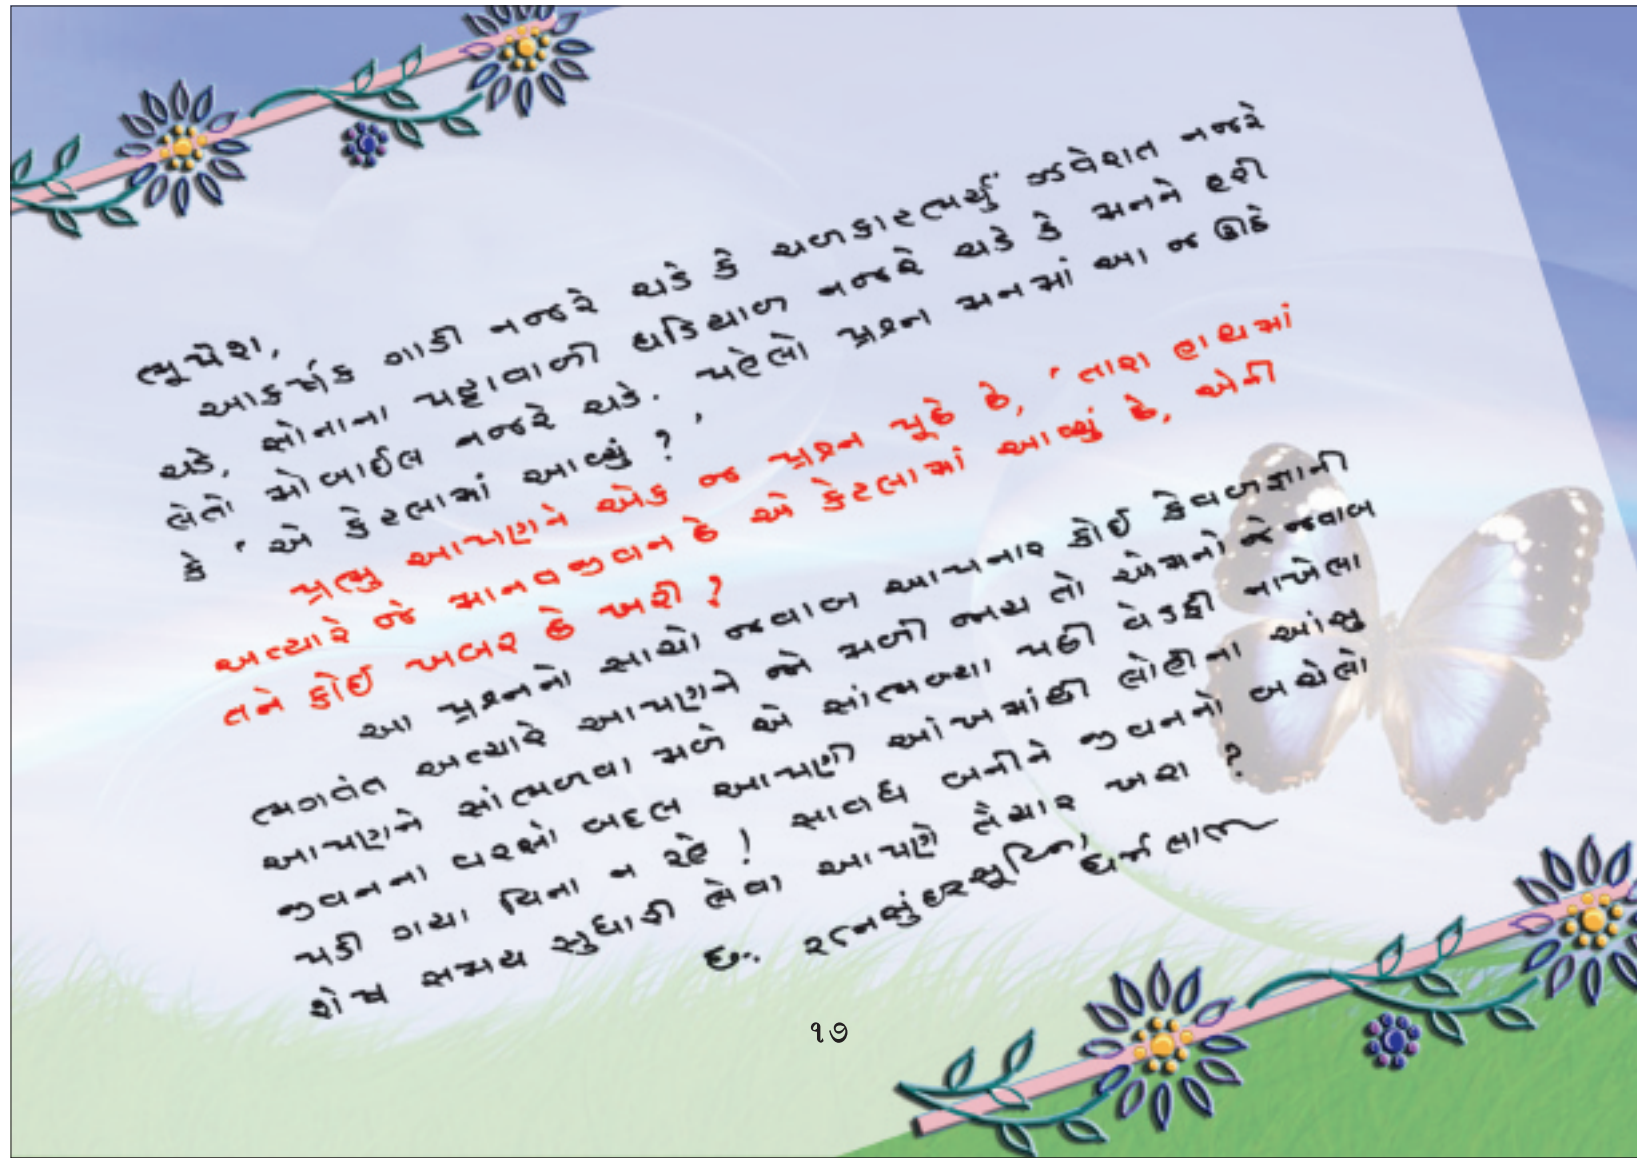 ભૂપેશ,
આકર્ષક ગાડી નજરે ચડે કે ચળકાટભર્યું ઝવેરાત નજરે
ચડે, સોનાના પટ્ટાવાળી ઘડિયાળ નજરે ચડે કે મનને હરી
લેતો મોબાઈલ નજરે ચડે. પહેલો પ્રશ્ન મનમાં આ જ ઊઠે
કે ' એ કેટલામાં આવ્યું ? '
પ્રભુ આપણને એક જ પ્રશ્ન પૂછે છે, ' તારા હાથમાં
અત્યારે જે માનવજીવન છે એ કેટલામાં આવ્યું છે, એની
તને કોઈ ખબર છે ખરી ?
આ પ્રશ્નનો સાચો જવાબ આપનાર કોઈ કેવળજ્ઞાની
ભગવંત અત્યારે આપણને જો મળી જાય તો એમનો જે જવાબ
આપણને સાંભળવા મળે એ સાંભળ્યા પછી વેડફી નાખેલા
જીવનના વરસો બદલ આપણી આંખમાંથી લોહીના આંસુ
પડી ગયા વિના ન રહે ! સાવધ બનીને જીવનનો બચેલો
શેષ સમય સુધારી લેવા આપણે તૈયાર ખરા ?
દ. રત્નસુંદરસૂરિના ધર્મલાભ
૧૭